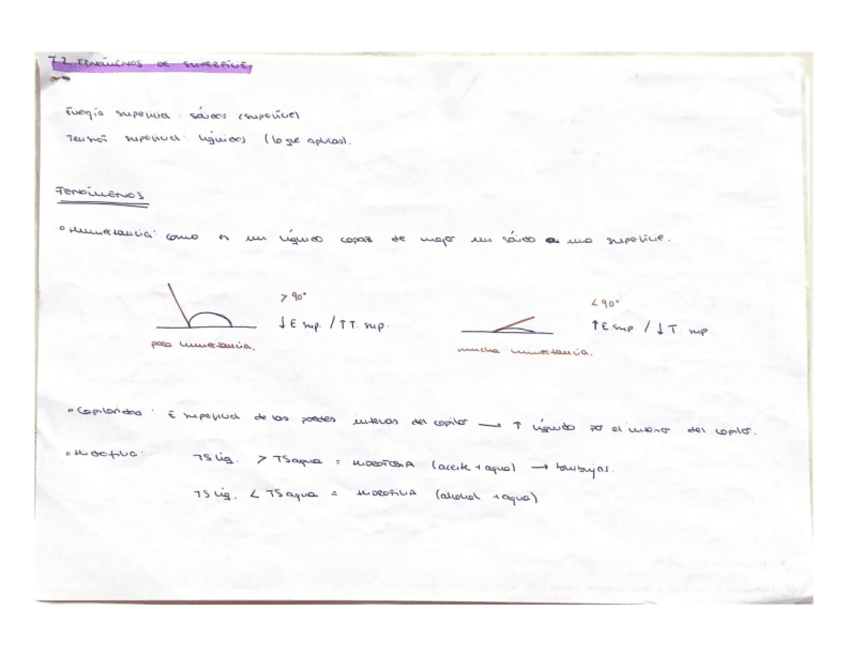 7.2. FENÓMENOS DE SUPERFICIE.
Energía superficial: sólidos (superficie)
Tensión superficial: líquidos (lo que aplicas).
FENÓMENOS
° Humectancia: como es un líquido capaz de mojar un sólido o una superficie.
> 90°
↓ E sup. / ↑ T. sup.
poca humectancia.
< 90°
↑ E sup / ↓ T. sup
mucha humectancia.
° Capilaridad: E superficial de las paredes internas del capilar → ↑ líquido por el interior del capilar.
° Hidrofilia: TS líq. > TS agua = HIDROFOBIA (aceite + agua) → burbujas.
TS líq. < TS agua = HIDROFILIA (alcohol + agua)